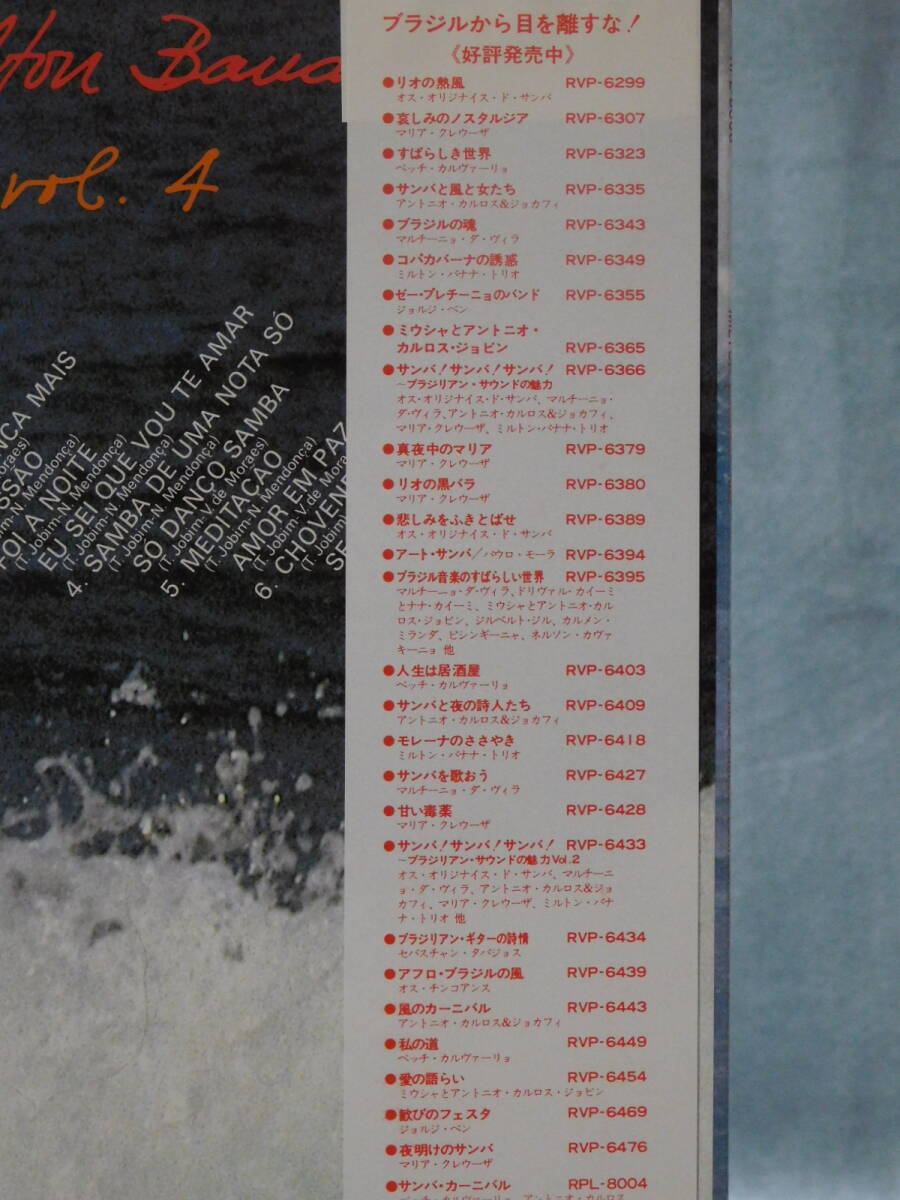 vol. 4
NCA MAIS
SSÃO
OI A NOITE
(T. Jobim-N. Mendonça)
EU SEI QUE VOU TE AMAR
4. SAMBA DE UMA NOTA SÓ
(T. Jobim-N. Mendonça)
SÓ DANÇO SAMBA
5. MEDITAÇÃO
(T. Jobim-N. Mendonça)
AMOR EM PAZ
6. CHOVENDO
ブラジルから目を離すな!
《好評発売中》
●リオの熱風 RVP-6299
オス・オリジナイス・ド・サンバ
●哀しみのノスタルジア RVP-6307
マリア・クレウーザ
●すばらしき世界 RVP-6323
ベッチ・カルヴァーリョ
●サンバと風と女たち RVP-6335
アントニオ・カルロス&ジョカフィ
●ブラジルの魂 RVP-6343
マルチーニョ・ダ・ヴィラ
●コパカバーナの誘惑 RVP-6349
ミルトン・バナナ・トリオ
●ゼー・プレチーニョのバンド RVP-6355
ジョルジ・ベン
●ミウシャとアントニオ・
カルロス・ジョビン RVP-6365
●サンバ!サンバ!サンバ! RVP-6366
~ブラジリアン・サウンドの魅力
オス・オリジナイス・ド・サンバ、マルチーニョ・
ダ・ヴィラ、アントニオ・カルロス&ジョカフィ、
マリア・クレウーザ、ミルトン・バナナ・トリオ
●真夜中のマリア RVP-6379
マリア・クレウーザ
●リオの黒バラ RVP-6380
マリア・クレウーザ
●悲しみをふきとばせ RVP-6389
オス・オリジナイス・ド・サンバ
●アート・サンバ/パウロ・モーラ RVP-6394
●ブラジル音楽のすばらしい世界 RVP-6395
マルチーニョ・ダ・ヴィラ、ドリヴァル・カイーミ
とナナ・カイーミ、ミウシャとアントニオ・カル
ロス・ジョビン、ジルベルト・ジル、カルメン・
ミランダ、ピシンギーニャ、ネルソン・カヴァ
キーニョ 他
●人生は居酒屋 RVP-6403
ベッチ・カルヴァーリョ
●サンバと夜の詩人たち RVP-6409
アントニオ・カルロス&ジョカフィ
●モレーナのささやき RVP-6418
ミルトン・バナナ・トリオ
●サンバを歌おう RVP-6427
マルチーニョ・ダ・ヴィラ
●甘い毒薬 RVP-6428
マリア・クレウーザ
●サンバ!サンバ!サンバ! RVP-6433
~ブラジリアン・サウンドの魅力Vol.2
オス・オリジナイス・ド・サンバ、マルチーニ
ョ・ダ・ヴィラ、アントニオ・カルロス&ジョ
カフィ、マリア・クレウーザ、ミルトン・バナ
ナ・トリオ 他
●ブラジリアン・ギターの詩情 RVP-6434
セバスチャン・タパジョス
●アフロ・ブラジルの風 RVP-6439
オス・チンコアンス
●風のカーニバル RVP-6443
アントニオ・カルロス&ジョカフィ
●私の道 RVP-6449
ベッチ・カルヴァーリョ
●愛の語らい RVP-6454
ミウシャとアントニオ・カルロス・ジョビン
●歓びのフェスタ RVP-6469
ジョルジ・ベン
●夜明けのサンバ RVP-6476
マリア・クレウーザ
●サンバ・カーニバル RPL-8004
ベッチ・カルヴァーリョ、アントニオ・カルロス